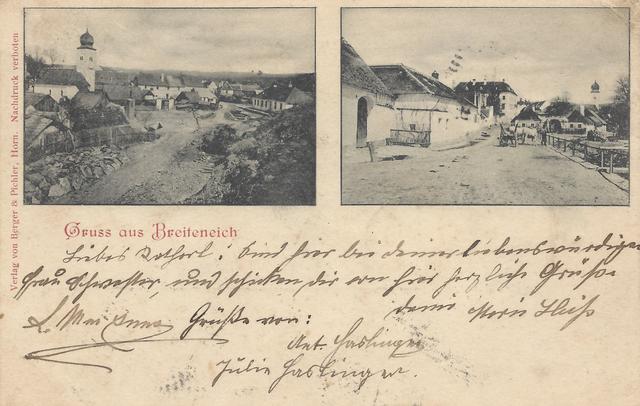 Verlag von Berger & Pichler, Horn. Nachdruck verboten
Gruss aus Breiteneich
Liebes ! Sind hier bei deiner liebenswürdigen
Frau Schwester, und schicken dir von hier herzliche Grüße
deine Marie
Grüße von:
Ant. Haslinger
Julie Haslinger.